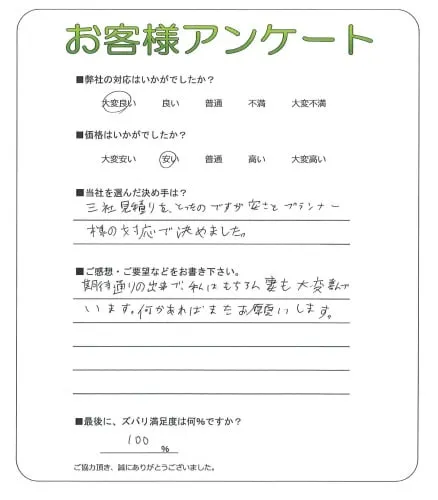 お客様アンケート
■弊社の対応はいかがでしたか？
大変良い 良い 普通 不満 大変不満
■価格はいかがでしたか？
大変安い 安い 普通 高い 大変高い
■当社を選んだ決め手は？
三社見積りを、とったのですが安さとプランナー
様の対応で決めました。
■ご感想・ご要望などをお書き下さい。
期待通りの出来で、私はもちろん妻も大変喜んで
います。何かあればまたお願いします。
■最後に、ズバリ満足度は何％ですか？
100 %
ご協力頂き、誠にありがとうございました。